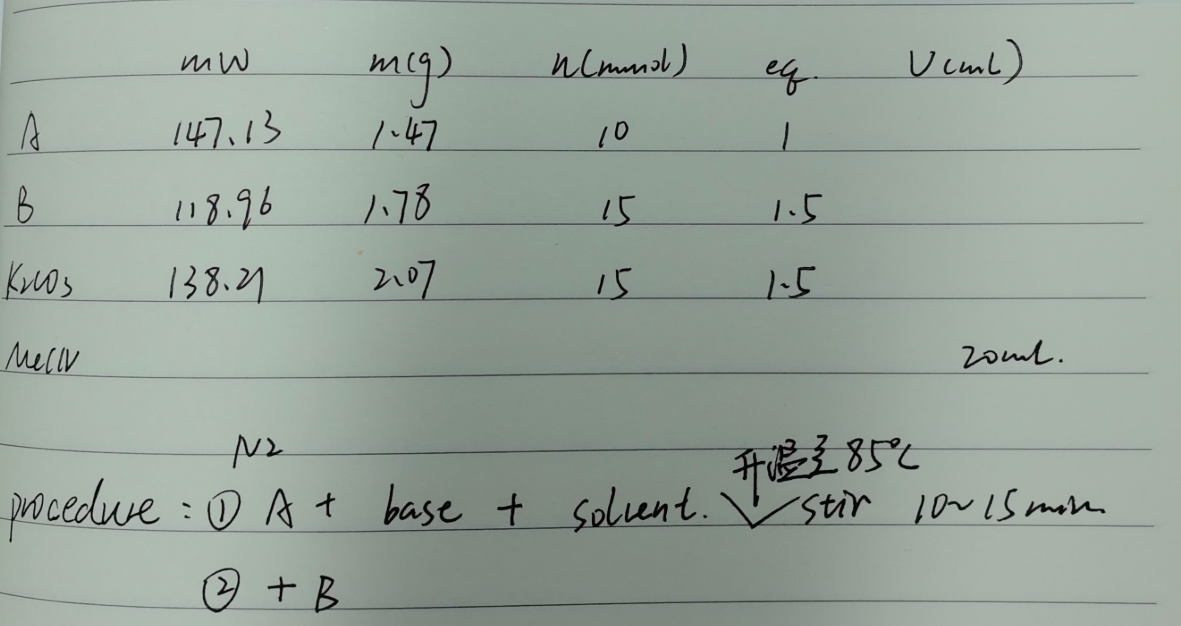 mW m(g) n(mmol) eq. V(mL)
A 147.13 1.47 10 1
B 118.96 1.78 15 1.5
K2CO3 138.21 2.07 15 1.5
MeCN 20mL.
N2
升温至85℃
procedure: ① A + base + solvent. stir 10~15min
② + B